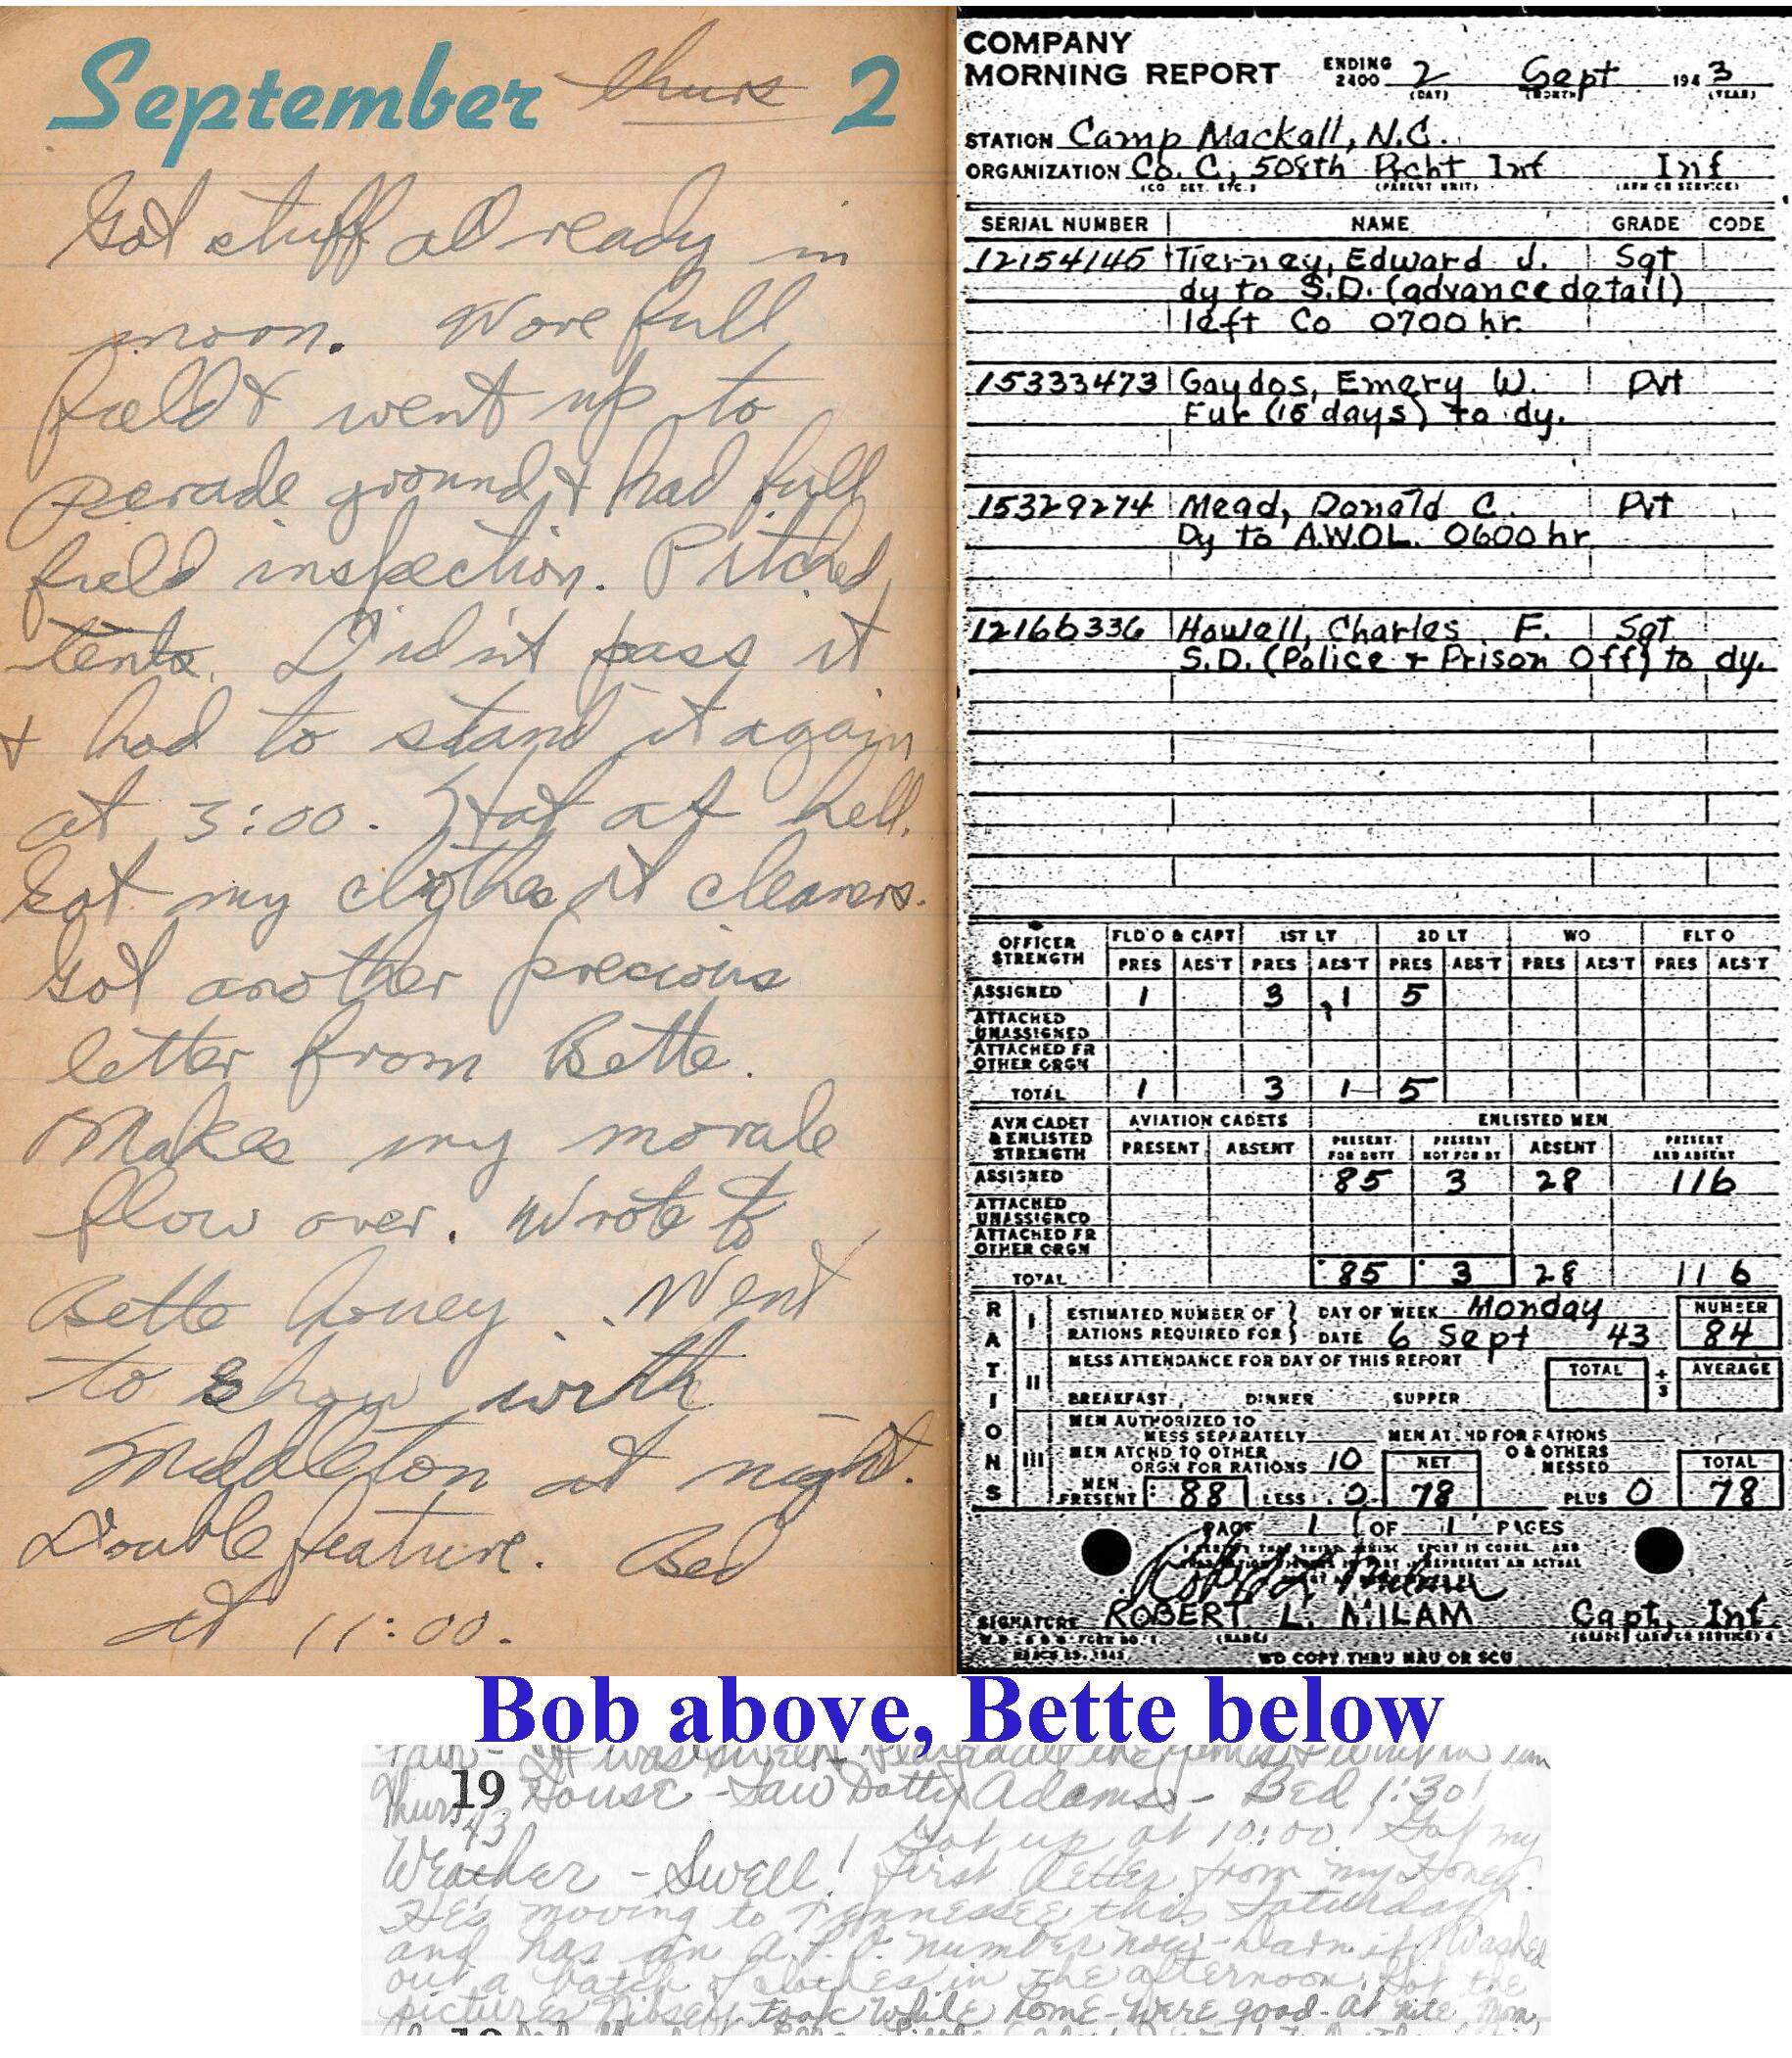 September thurs 2
Got stuff all ready in
moon. Wore full
field & went up to
perade ground & had full
field inspection. Pitched
tents. Didn't pass it
& had to stand it again
at 3:00. Hot as hell.
Got my clothes at cleaners.
Got another precious
letter from Bette.
Makes my morale
flow over. Wrote to
Bette honey. Went
to show with
Middleton at night.
Double feature. Bed
at 11:00.
COMPANY
MORNING REPORT ENDING 2400 2 Sept 1943
(DAY) (MONTH) (YEAR)
STATION Camp Mackall, N.C.
ORGANIZATION Co. C, 508th Prcht Inf Inf
(CO DET. ETC.) (PARENT UNIT) (ARM OR SERVICE)
SERIAL NUMBER NAME GRADE CODE
12154145 Tierney, Edward J. Sgt
dy to S.D. (advance detail)
left Co 0700 hr.
15333473 Gaydos, Emery W. Pvt
Fur (15 days) to dy.
15329274 Mead, Donald C. Pvt
Dy to A.W.O.L. 0600 hr
12166336 Howell, Charles F. Sgt
S.D. (Police & Prison Off) to dy.
OFFICER STRENGTH FLD O & CAPT 1ST LT 2D LT WO FLT O
PRES ABS'T PRES ABS'T PRES ABS'T PRES ABS'T PRES ABS'T
ASSIGNED 1 3 1 5
ATTACHED UNASSIGNED
ATTACHED FR OTHER ORGN
TOTAL 1 3 1 5
AVN CADET & ENLISTED STRENGTH AVIATION CADETS ENLISTED MEN
PRESENT ABSENT PRESENT FOR DUTY PRESENT NOT FOR DY ABSENT PRESENT AND ABSENT
ASSIGNED 85 3 28 116
ATTACHED UNASSIGNED
ATTACHED FR OTHER ORGN
TOTAL 85 3 28 116
RATIONS
I ESTIMATED NUMBER OF DAY OF WEEK Monday NUMBER
RATIONS REQUIRED FOR DATE 6 Sept 43 84
II MESS ATTENDANCE FOR DAY OF THIS REPORT TOTAL ÷ 3 AVERAGE
BREAKFAST DINNER SUPPER
III MEN AUTHORIZED TO MESS SEPARATELY MEN ATCHD FOR RATIONS
MEN ATCHD TO OTHER ORGN FOR RATIONS 10 NET O & OTHERS MESSED TOTAL
MEN PRESENT 88 LESS 78 PLUS 0 78
PAGE 1 OF 1 PAGES
SIGNATURE ROBERT L. MILAM Capt, Inf.
(NAME) (GRADE) (ARM OR SERVICE)
MARCH 25, 1943 WD COPY THRU MRU OR SCU
Bob above, Bette below
19 House - Saw Dotty Adams - Bed 1:30!
Thurs 43
Got up at 10:00! Got my
Weather - Swell! first letter from my Honey.
He's moving to Tennessee this Saturday
and has an A.P.O. number now - Darn it! Washed
out a batch of clothes in the afternoon. Got the
pictures Nibsey took while home - were good - at nite Mom,